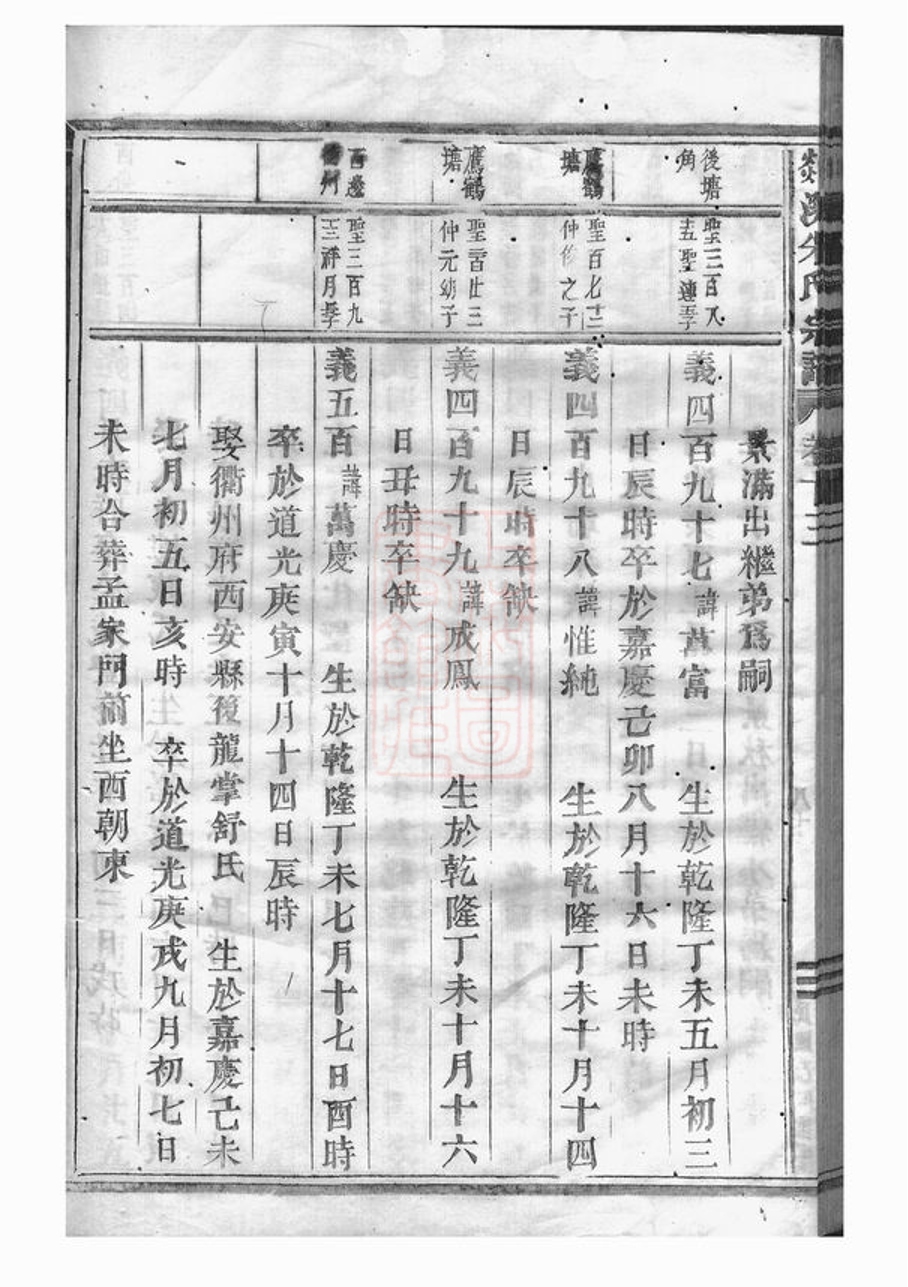 宗譜 卷十三
景滿出繼弟爲嗣
後塘角
聖三百八十五聖連子
義四百九十七諱萬富 生於乾隆丁未五月初三
日辰時卒於嘉慶己卯八月十六日未時
鷹鶴塘
聖百七十二仲修之子
義四百九十八諱惟純 生於乾隆丁未十月十四
日辰時卒缺
鷹鶴塘
聖二百廿三仲元幼子
義四百九十九諱成鳳 生於乾隆丁未十月十六
日丑時卒缺
聖三百九十三祥月子
義五百諱萬慶 生於乾隆丁未七月十七日酉時
卒於道光庚寅十月十四日辰時
娶衢州府西安縣後龍掌舒氏 生於嘉慶己未
七月初五日亥時 卒於道光庚戌九月初七日
未時合葬孟家門前坐西朝東